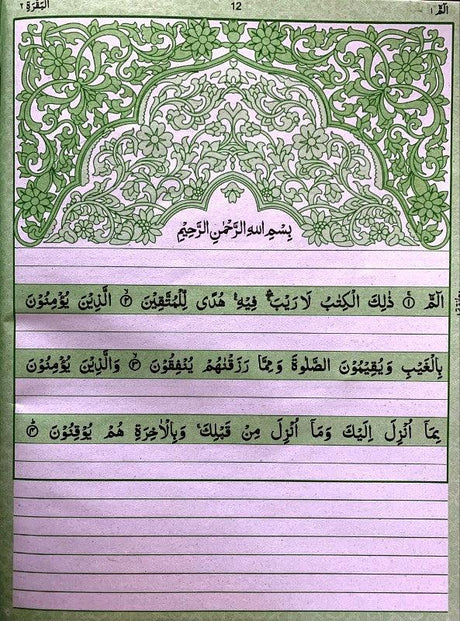 الٓمّٓ ١ 12 الْبَقَرَة ٢
بِسْمِ اللهِ الرَّحْمٰنِ الرَّحِيْمِ
الٓمّٓ ۚ ﴿١﴾ ذٰلِكَ الْكِتٰبُ لَا رَيْبَ ۛۖ فِيْهِ ۛۚ هُدًى لِّلْمُتَّقِيْنَ ۙ ﴿٢﴾ الَّذِيْنَ يُؤْمِنُوْنَ
بِالْغَيْبِ وَيُقِيْمُوْنَ الصَّلٰوةَ وَمِمَّا رَزَقْنٰهُمْ يُنْفِقُوْنَ ۙ ﴿٣﴾ وَالَّذِيْنَ يُؤْمِنُوْنَ
بِمَآ اُنْزِلَ اِلَيْكَ وَمَآ اُنْزِلَ مِنْ قَبْلِكَ ۚ وَبِالْاٰخِرَةِ هُمْ يُوْقِنُوْنَ ؕ ﴿٤﴾